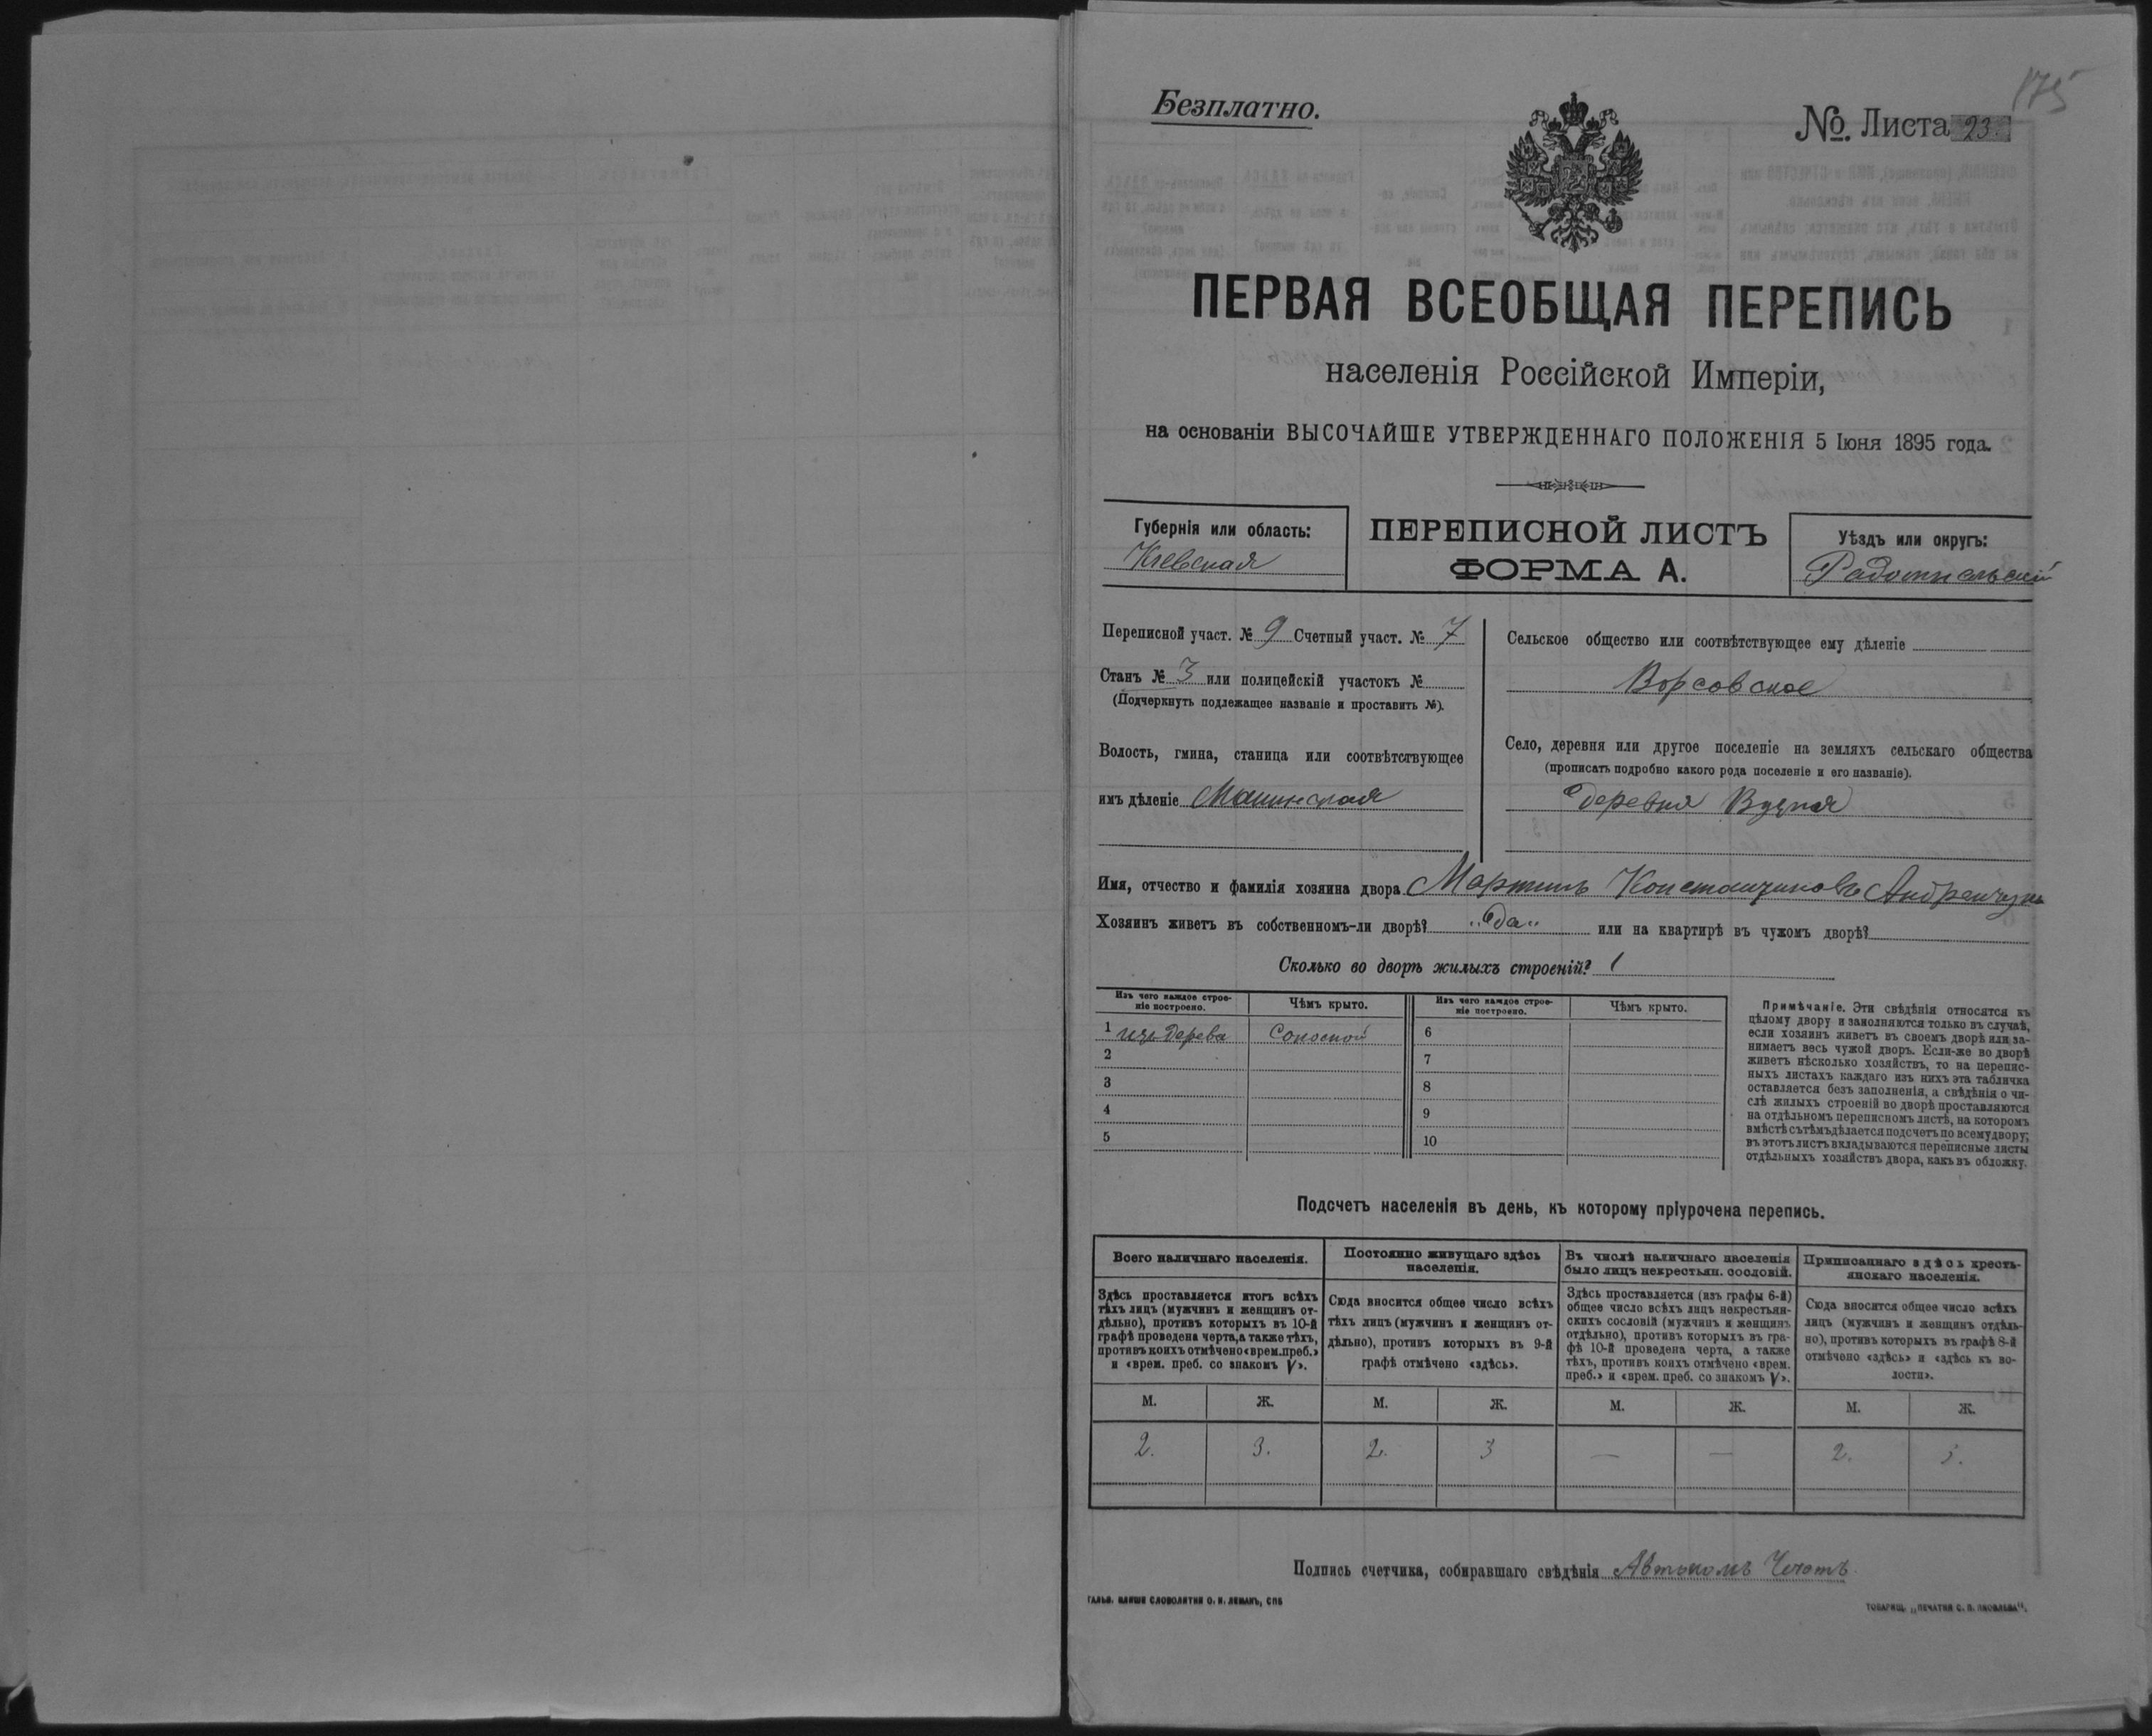 175
Безплатно.
№. Листа 23.
ПЕРВАЯ ВСЕОБЩАЯ ПЕРЕПИСЬ
населенія Россійской Имперіи,
на основаніи ВЫСОЧАЙШЕ УТВЕРЖДЕННАГО ПОЛОЖЕНІЯ 5 Іюня 1895 года.
Губернія или область:
Кіевская
ПЕРЕПИСНОЙ ЛИСТЪ
ФОРМА А.
Уѣздъ или округъ:
Радомысльскій
Переписной участ. № 9 Счетный участ. № 7
Станъ № 3 или полицейскій участокъ №
(Подчеркнуть подлежащее названіе и проставить №).
Волость, гмина, станица или соотвѣтствующее
имъ дѣленіе Малинская
Сельское общество или соотвѣтствующее ему дѣленіе
Ворсовское
Село, деревня или другое поселеніе на земляхъ сельскаго общества
(прописать подробно какого рода поселеніе и его названіе).
деревня
Имя, отчество и фамилія хозяина двора Мартинъ Константиновъ Андрейчукъ
Хозяинъ живетъ въ собственномъ-ли дворѣ? „да“ или на квартирѣ въ чужомъ дворѣ?
Сколько во дворѣ жилыхъ строеній? 1
Изъ чего каждое строе-
ніе построено.
Чѣмъ крыто.
Изъ чего каждое строе-
ніе построено.
Чѣмъ крыто.
1 изъ дерева Соломой 6
2 7
3 8
4 9
5 10
Примѣчаніе. Эти свѣдѣнія относятся къ
цѣлому двору и заполняются только въ случаѣ,
если хозяинъ живетъ въ своемъ дворѣ или за-
нимаетъ весь чужой дворъ. Если-же во дворѣ
живетъ нѣсколько хозяйствъ, то на перепис-
ныхъ листахъ каждаго изъ нихъ эта табличка
оставляется безъ заполненія, а свѣдѣнія о чи-
слѣ жилыхъ строеній во дворѣ проставляются
на отдѣльномъ переписномъ листѣ, на которомъ
вмѣстѣ съ тѣмъ дѣлается подсчетъ по всему двору;
въ этотъ листъ вкладываются переписные листы
отдѣльныхъ хозяйствъ двора, какъ въ обложку.
Подсчетъ населенія въ день, къ которому пріурочена перепись.
Всего наличнаго населенія.
Здѣсь проставляется итогъ всѣхъ
тѣхъ лицъ (мужчинъ и женщинъ от-
дѣльно), противъ которыхъ въ 10-й
графѣ проведена черта, а также тѣхъ,
противъ коихъ отмѣчено «врем. преб.»
и «врем. преб. со знакомъ V».
Постоянно живущаго здѣсь
населенія.
Сюда вносится общее число всѣхъ
тѣхъ лицъ (мужчинъ и женщинъ от-
дѣльно), противъ которыхъ въ 9-й
графѣ отмѣчено «здѣсь».
Въ числѣ наличнаго населенія
было лицъ некрестьян. сословій.
Здѣсь проставляется (изъ графы 6-й)
общее число всѣхъ лицъ некрестьян-
скихъ сословій (мужчинъ и женщинъ
отдѣльно), противъ которыхъ въ гра-
фѣ 10-й проведена черта, а также
тѣхъ, противъ коихъ отмѣчено «врем.
преб.» и «врем. преб. со знакомъ V».
Приписаннаго здѣсь кресть-
янскаго населенія.
Сюда вносится общее число всѣхъ
лицъ (мужчинъ и женщинъ отдѣль-
но), противъ которыхъ въ графѣ 8-й
отмѣчено «здѣсь» и «здѣсь къ во-
лости».
М. Ж. М. Ж. М. Ж. М. Ж.
2. 3. 2. 3 — — 2. 3.
Подпись счетчика, собиравшаго свѣдѣнія Автономъ
ГАЛЬВ. КЛИШЕ СЛОВОЛИТНИ О. И. ЛЕМАНЪ, СПБ
ТОВАРИЩ. „ПЕЧАТНЯ С. П. ЯКОВЛЕВА“.